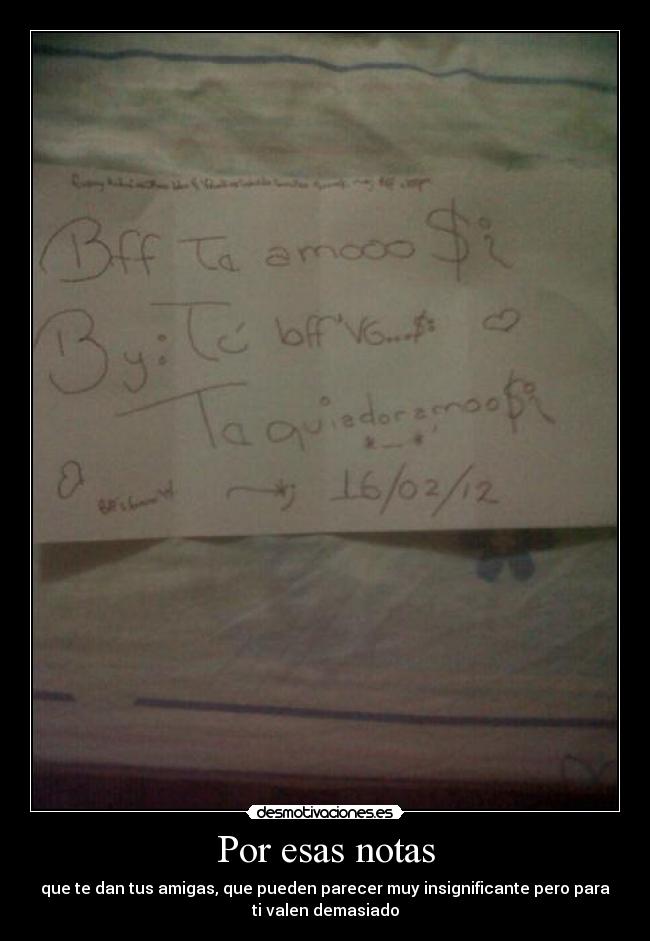 Bff Ta amooo $i
By: Tú bff'VG...$:
Ta quiadoramoo$i
*_*'
16/02/12
desmotivaciones.es
Por esas notas
que te dan tus amigas, que pueden parecer muy insignificante pero para
ti valen demasiado